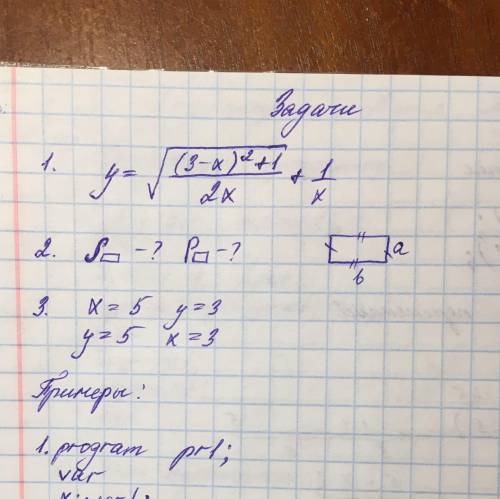 Задачи
1. y = √((3-x)²+1)/2x + 1/x
2. S▭ -? P▭ -? a
b
3. x = 5 y = 3
y = 5 x = 3
Примеры:
1. program pr1;
var